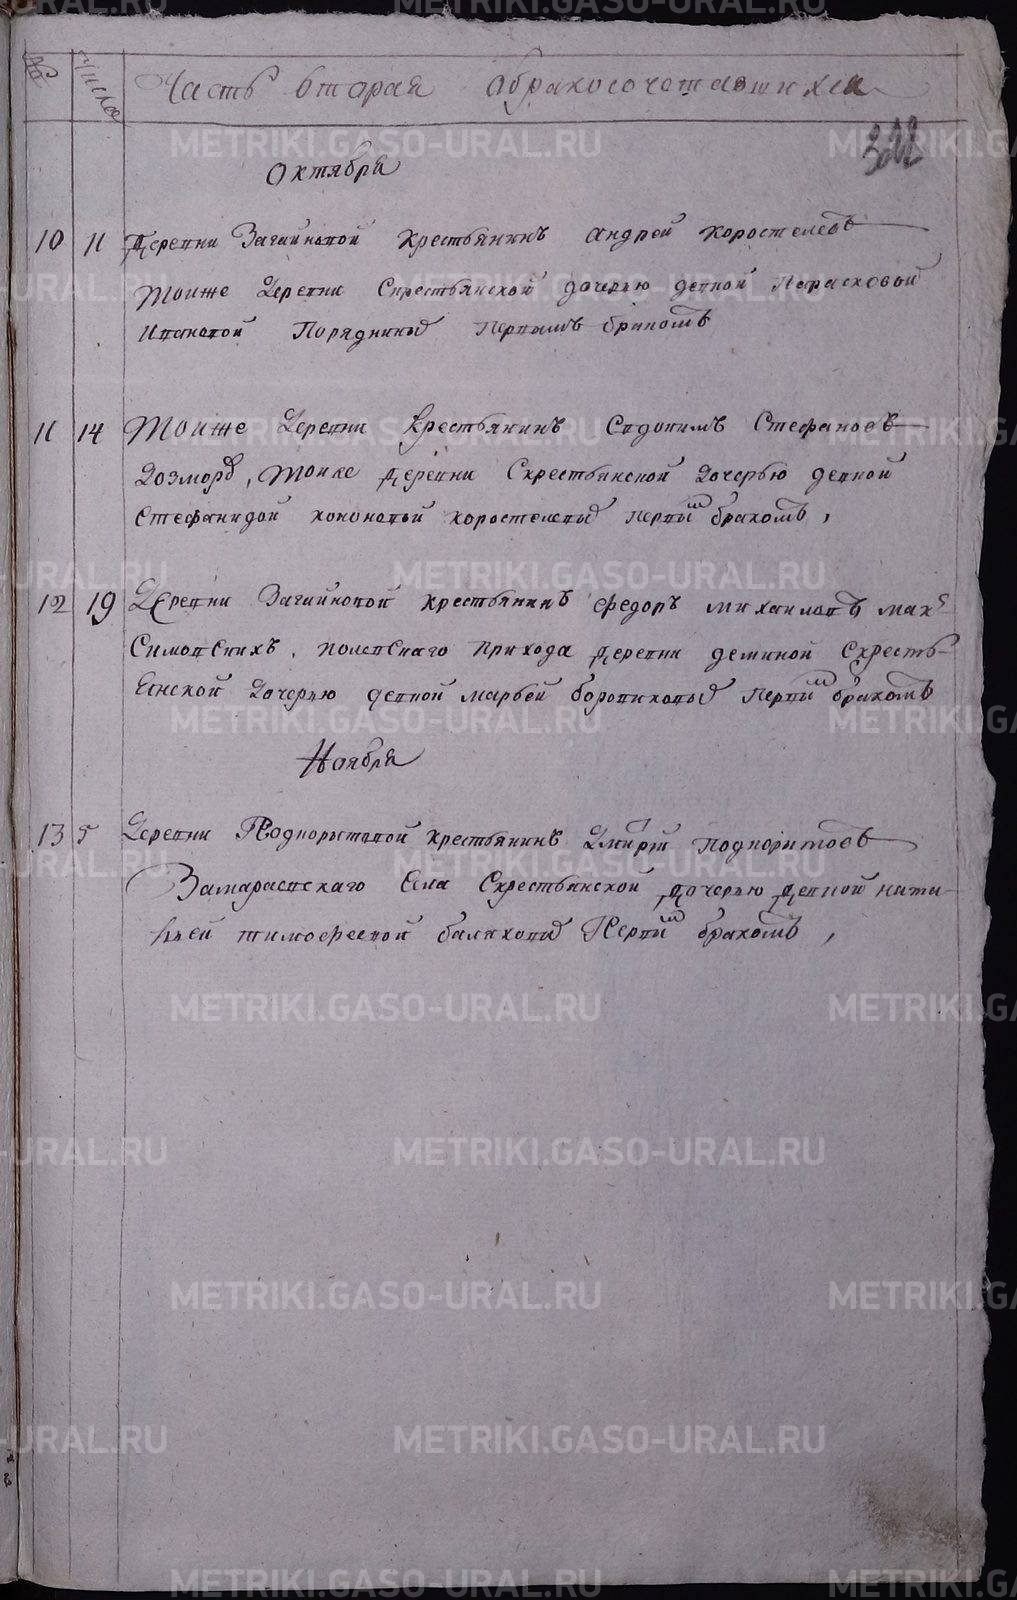 № Число Часть вторая обракосочетавшихся
322
Октября
10 11 Деревни Загайновой крестьянинъ андрей коростелевъ
тоиже Деревни Скрестьянской дочерью девкой Парасковой
ивановой Поряднины первымъ бракомъ
11 14 Тоиже Деревни крестьянинъ Стефановъ
тоиже деревни Скрестьянской дочерью девкой
Стефанидой кононовой коростелевы первымъ бракомъ,
12 19 Деревни Загайновой крестьянинъ федоръ михаиловъ мак-
симовскихъ, прихода деревни деминой Скресть-
янской дочерью девкой марьей боровиковы первымъ бракомъ
Ноября
13 5 Деревни крестьянинъ Дмитрiй
Замараевскаго Села Скрестьянской дочерью девкой ната-
льей тимофеевой балиховы Первымъ бракомъ,
METRIKI.GASO-URAL.RU